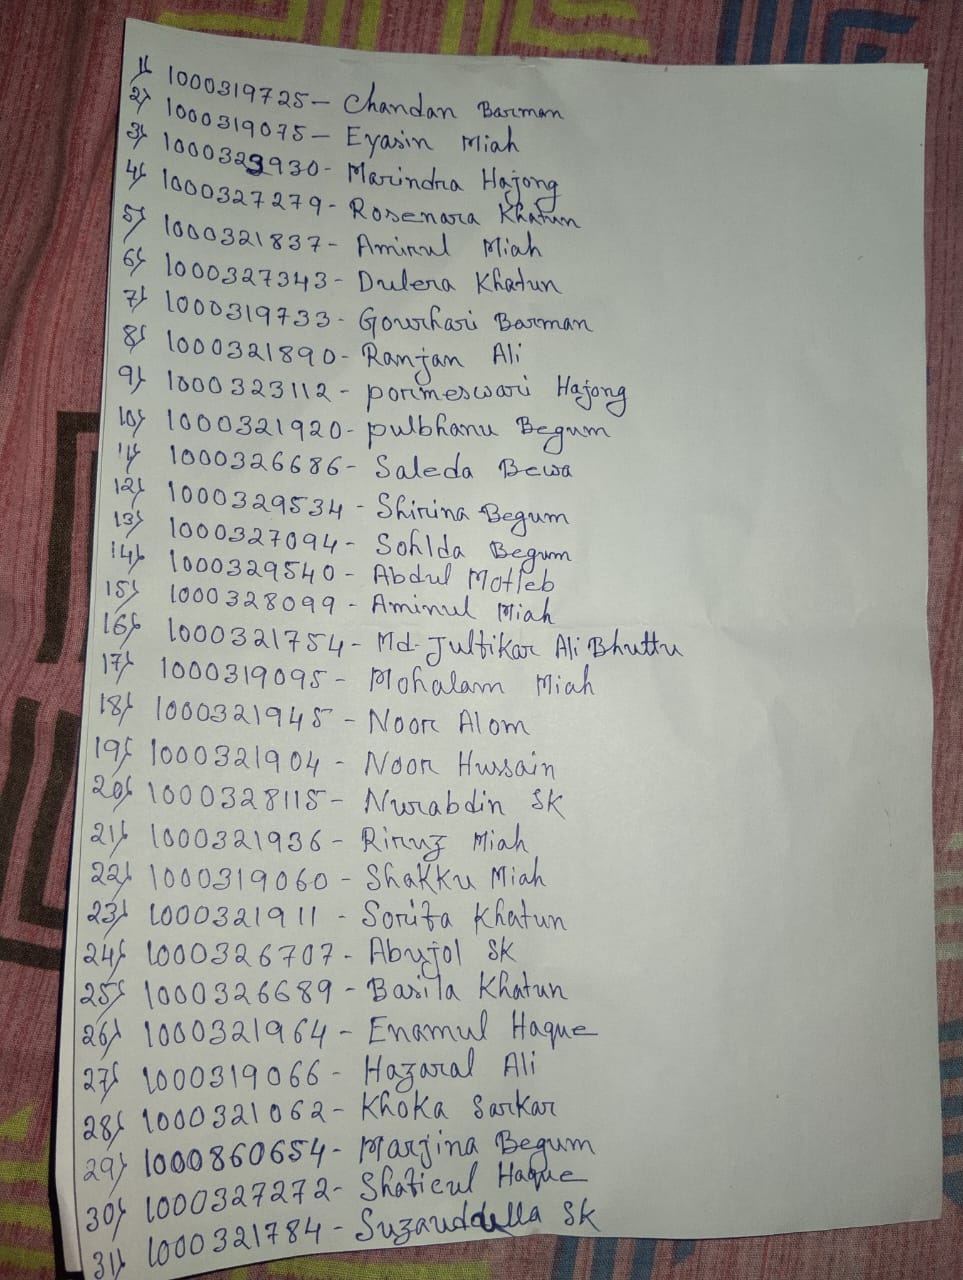 1) 1000319725- Chandan Barman
2) 1000319075- Eyasin Miah
3) 1000323930- Marindra Hajong
4) 1000327279- Rosenara Khatun
5) 1000321837- Aminul Miah
6) 1000327343- Dulera Khatun
7) 1000319733- Gourhari Barman
8) 1000321890- Ranjan Ali
9) 1000323112- pormeswari Hajong
10) 1000321920- pulbhanu Begum
11) 1000326686- Saleda Bewa
12) 1000329534- Shirina Begum
13) 1000327094- Sohlda Begum
14) 1000329540- Abdul Motleb
15) 1000328099- Aminul Miah
16) 1000321754- Md- Julfikar Ali Bhuttu
17) 1000319095- Mohalam Miah
18) 1000321945- Noor Alom
19) 1000321904- Noor Hussain
20) 1000328115- Nurabdin SK
21) 1000321936- Miah
22) 1000319060- Shakku Miah
23) 1000321911- Sorifa Khatun
24) 1000326707- Abujol SK
25) 1000326689- Basila Khatun
26) 1000321964- Enamul Haque
27) 1000319066- Hazaral Ali
28) 1000321062- Khoka Sarkar
29) 1000860654- Marjina Begum
30) 1000327272- Shaficul Haque
31) 1000321784- SK